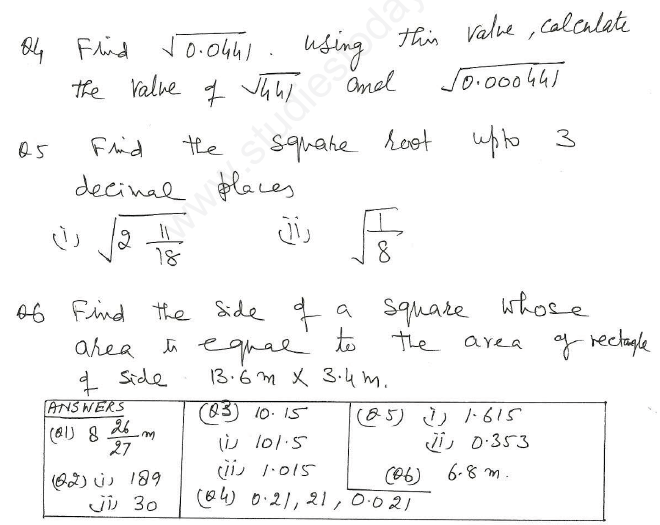 Q4 Find √0.0441 . Using this value, calculate
the value of √441 and √0.000441
Q5 Find the square root upto 3
decimal places
i) √2 11/18 ii) √1/8
Q6 Find the side of a square whose
area is equal to the area of rectangle
of side 13.6 m X 3.4 m.
ANSWERS
(Q1) 8 26/27 m
(Q2) i) 189
ii) 30
(Q3) 10.15
i) 101.5
ii) 1.015
(Q4) 0.21, 21, 0.021
(Q5) i) 1.615
ii) 0.353
(Q6) 6.8 m.
www.studiestoday